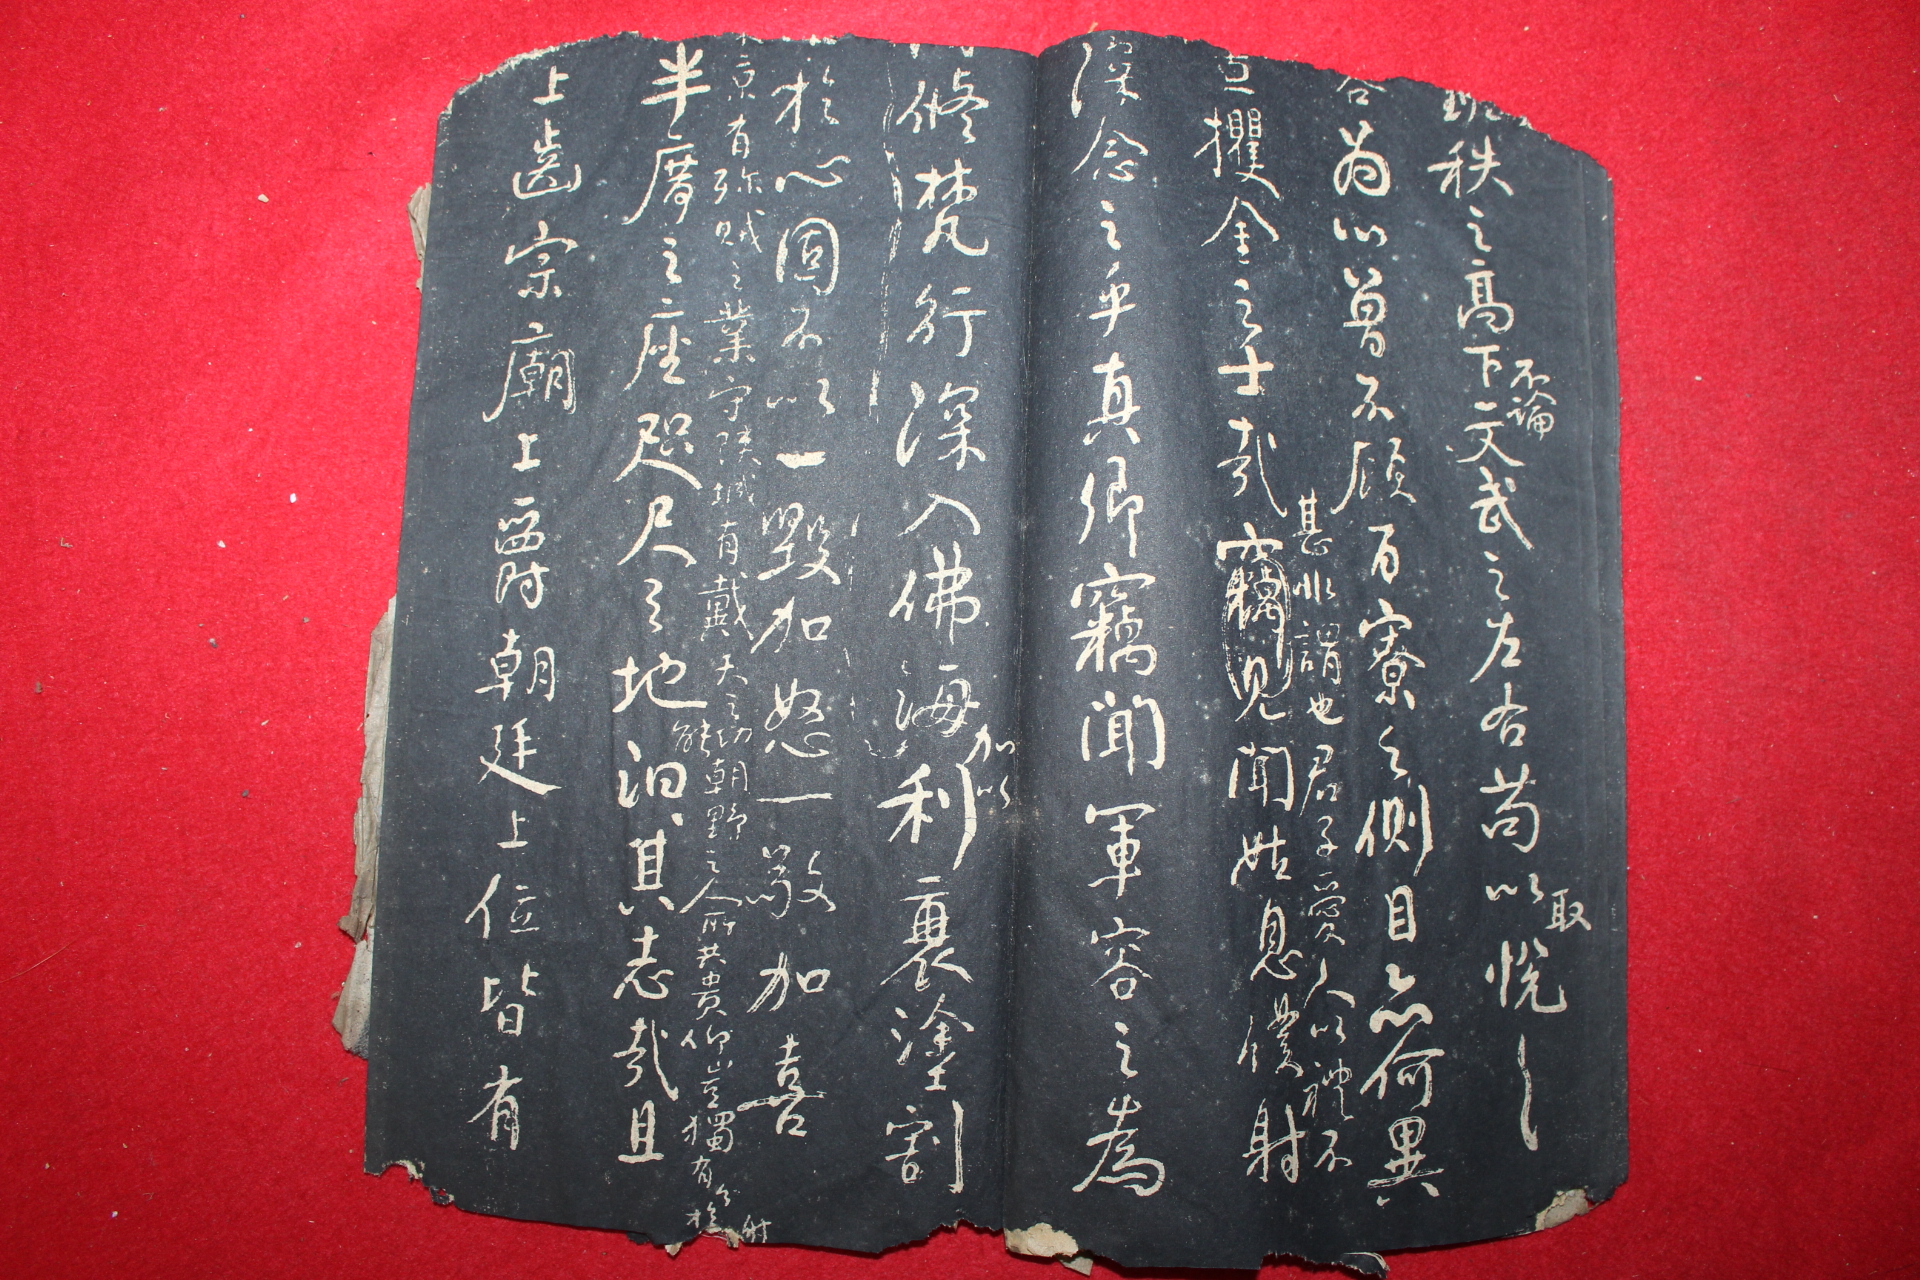 不論
取
秩之高下文武之左右苟以悅
容為心曾不顧百寮之側目亦何異
甚非謂也君子愛人以禮不
攫金之士哉竊見聞姑息僕射
深念之乎真卿竊聞軍容之為
加以
脩梵行深入佛海利衰塗割
於心固不以一毀加怒一敬加喜
京有殄賊之業守陝城有戴天之功朝野之人所共貴仰豈獨有分於
射
能
半席之座咫尺之地汩其志哉且
上齒宗廟上爵朝廷上位皆有